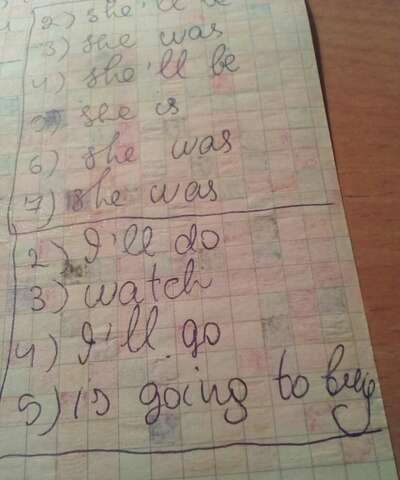 2) she'll be
3) she was
4) she'll be
5) she is
6) she was
7) she was
2) I'll do
3) watch
4) I'll go
5) is going to buy